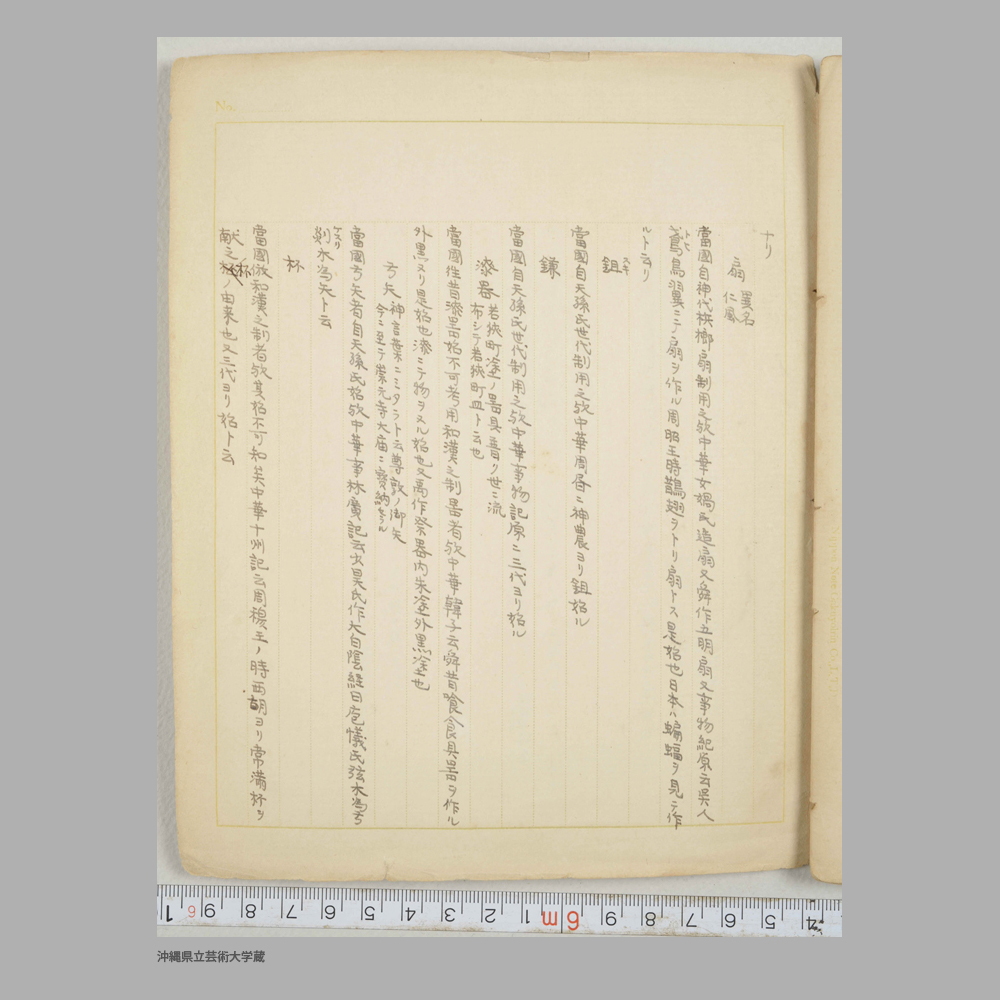 ナリ
扇 異名 仁風
當國自神代檳榔扇制用之欤中華女媧氏造扇又舜作五明扇又事物紀原云呉人
鳶鳥翼ニテ扇ヲ作ル周昭王時鵲翅ヲトリ扇トス是始也日本ハ蝙蝠ヲ見テ作
ルト云リ
鉏 スキ
當國自天孫氏世代制用之欤中華周昏ニ神農ヨリ鉏始ル
鎌
當國自天孫氏世代制用之欤中華事物記原ニ三代ヨリ始ル
漆器 若狹町塗ノ噐具普ク世ニ流布シテ若狹町皿ト云也
當國往昔漆噐始不可考用和漢之制噐者欤中華韓子云舜昔飧食具噐ヲ作ル
外黒ヌリ是始也漆ニテ物ヲヌル始也又禹作祭器内朱塗外黒塗也
弓矢 神言葉ニミタラト云尊敦ノ御矢今ニ至テ崇元寺大庙ニ寳納セラル
當國弓矢者自天孫氏始欤中華事林廣記云少昊氏作矢白陰経曰庖犠氏弦木為弓
剡木為矢ト云 ケズリ
杯
當國倣和漢之制者欤其始不可知矣中華十州記云周穆王ノ時西胡ヨリ常滿杯ヲ
献之杯ノ由来也又三代ヨリ始ト云